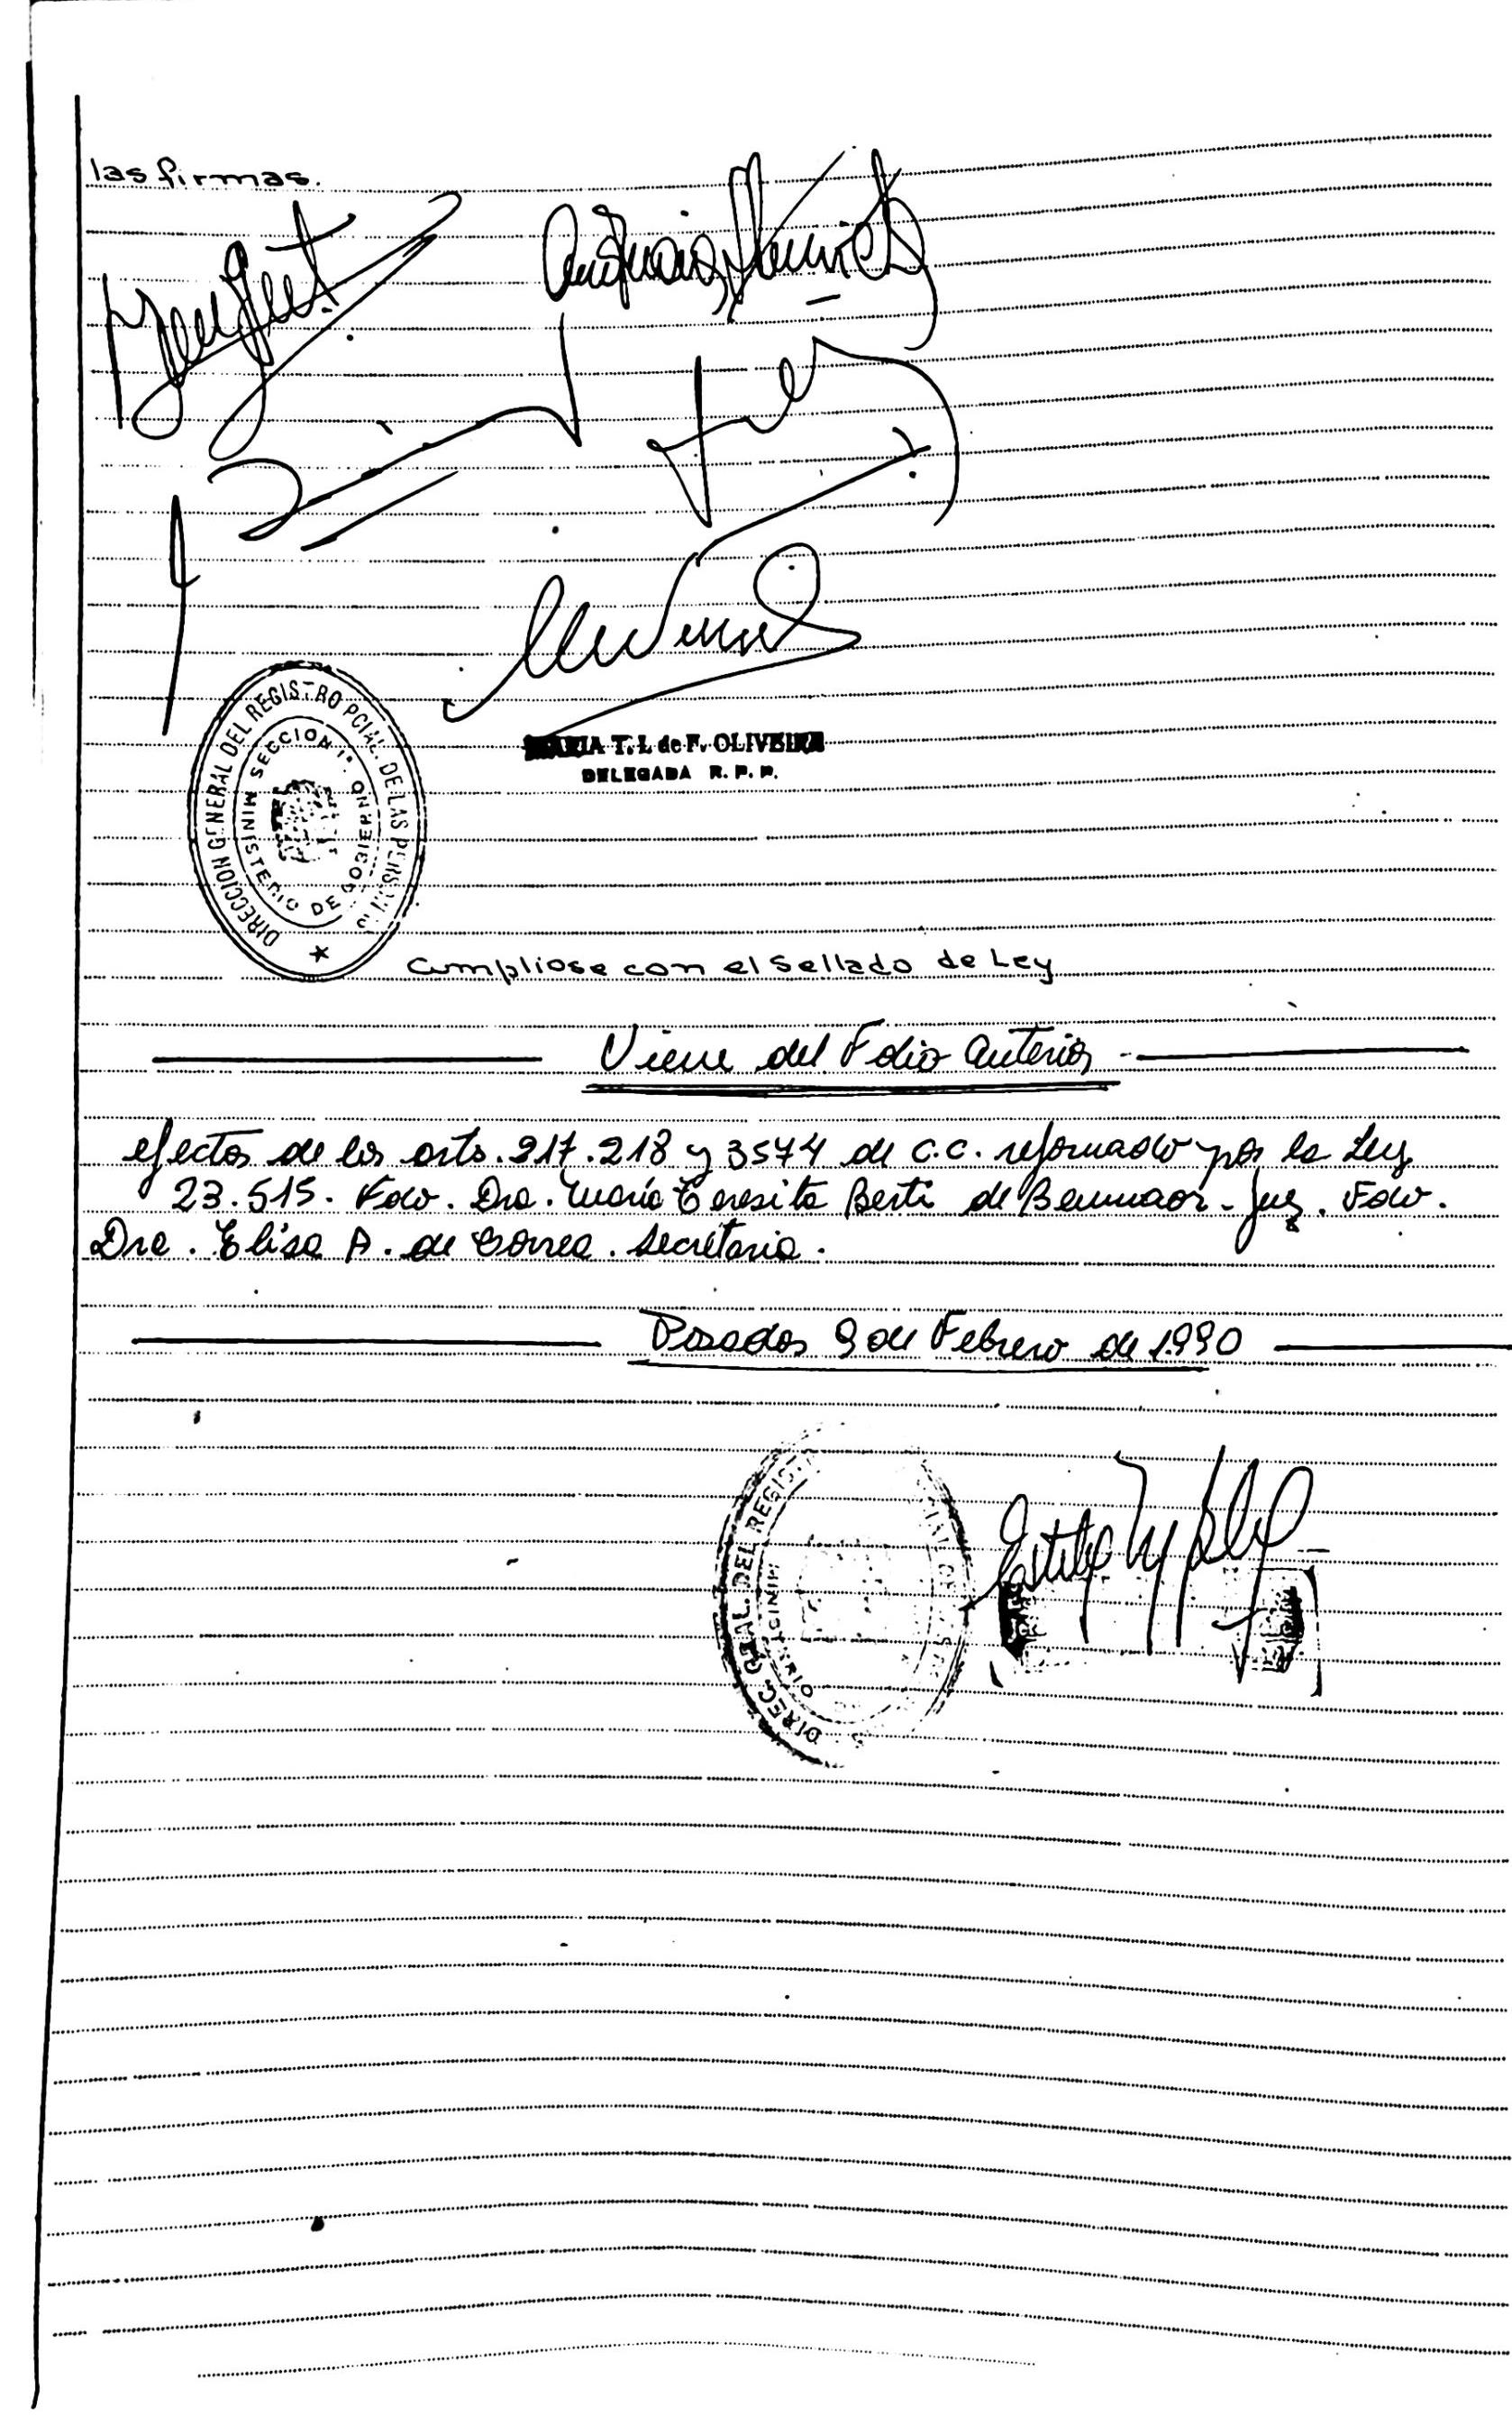 las firmas.
MARIA T. I. de F. OLIVEIRA
DELEGADA R. P. P.
DIRECCION GENERAL DEL REGISTRO PCIAL. DE LAS PERSONAS
SECCION 1ª.
MINISTERIO DE GOBIERNO
Cumpliose con el Sellado de Ley
Viene del Folio anterior
efectos de los arts. 217. 218 y 3574 de C.C. reformado por la Ley
23.515. Fdo. Dra. María Teresita Berti de - Juez. Fdo.
Dra. Elisa A. de Correa. Secretaria.
Posadas 9 de Febrero de 1.990
DIREC. GRAL. DEL REGIST
MINISTERIO